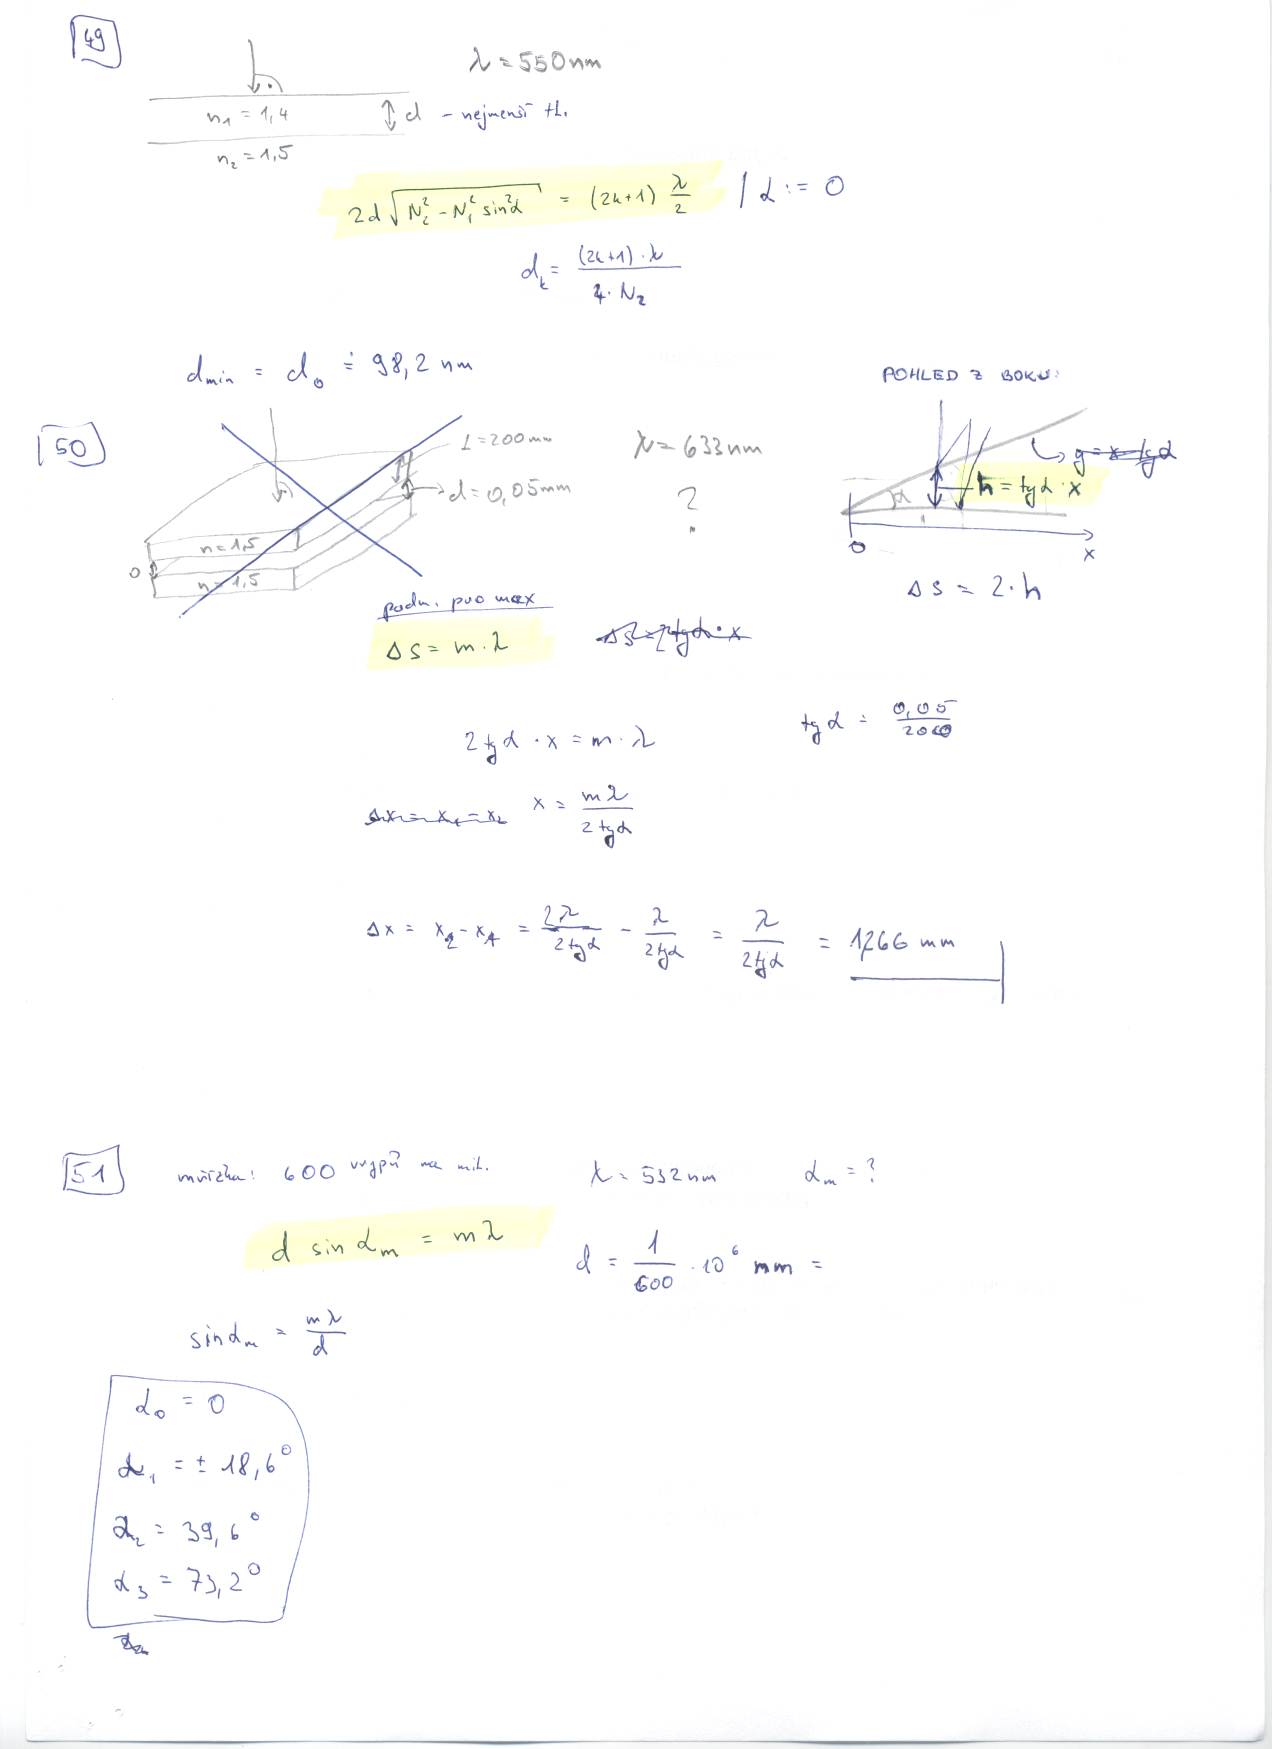 49
λ = 550nm
n₁ = 1,4
d - nejmenší tl.
n₂ = 1,5
2d √(N₂² - N₁² sin²α) = (2k+1) λ/2 / α := 0
d_k = (2k+1)·λ / 4·N₂
d_min = d₀ ≐ 98,2 nm
POHLED Z BOKU:
50
l = 200mm
d = 0,05mm
λ = 633nm
?
y = x·tgα
h = tgα · x
α
n = 1,5
0
n = 1,5
0
x
Δs = 2·h
podm. pro max
Δs = m·λ
Δs = 2tgα · x
2 tgα · x = m·λ
tgα = 0,05/200
Δx = x₁ - x₂
x = mλ / 2tgα
Δx = x₂ - x₁ = 2λ/2tgα - λ/2tgα = λ/2tgα = 1,266 mm
51
mřížka: 600 vrypů na mil.
λ = 532nm
α_m = ?
d sin α_m = mλ
d = 1/600 · 10⁶ mm =
sinα_m = mλ/d
α₀ = 0
α₁ = ± 18,6°
α₂ = 39,6°
α₃ = 73,2°